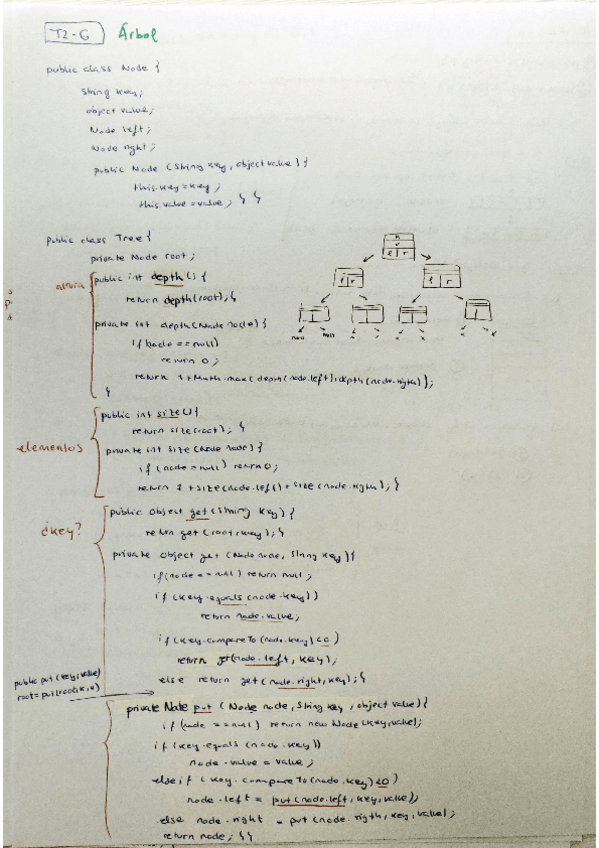 T2-G Árbol
public class Node {
String key;
object value;
Node left;
Node right;
public Node (String key, object value) {
this.key = key;
this.value = value; } }
public class Tree {
private Node root;
altura public int depth() {
return depth(root); }
private int depth(Node node) {
if (node == null)
return 0;
return 1 + Math.max( depth(node.left), depth(node.rigth));
}
k
v
l r
l r
l r
null null
public int size() {
return size(root); }
elementos private int size(Node node) {
if (node = null) return 0;
return 1 + size(node.left) + size(node.rigth); }
public Object get (String key) {
¿key? return get (root, key); }
private Object get (Node node, String key) {
if (node == null) return null;
if (key.equals (node.key))
return node.value;
if (key.compareTo (node.key) < 0)
return get(node.left, key);
else return get (node.right, key); }
public put (key, value)
root = put(root, k, v)
private Node put ( Node node, String key, object value) {
if (node == null) return new Node (key, value);
if (key.equals (node.key))
node.value = value;
else if ( key.compareTo (node.key) < 0)
node.left = put (node.left, key, value);
else node.right = put (node.rigth, key, value);
return node; } }